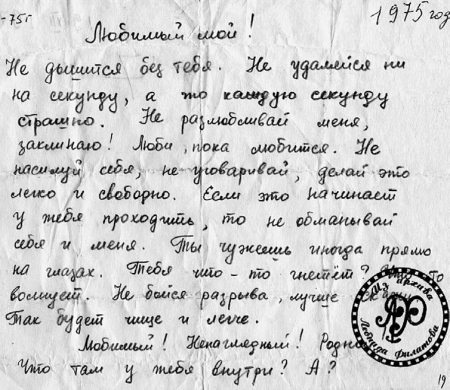 -75г
1975 год
Любимый мой!
Не дышится без тебя. Не удаляйся ни
на секунду, а то каждую секунду
страшно. Не разлюбливай меня,
заклинаю! Люби, пока любится. Не
насилуй себя, не уговаривай, делай это
легко и свободно. Если это начинает
у тебя проходить, то не обманывай
себя и меня. Ты чужеешь иногда прямо
на глазах. Тебя что-то гнетёт? то
волнует. Не бойся разрыва, лучше
Так будет чище и легче.
Любимый! Ненаглядный!
Что там у тебя внутри? А?
Из архива
Леонида Филатова
19